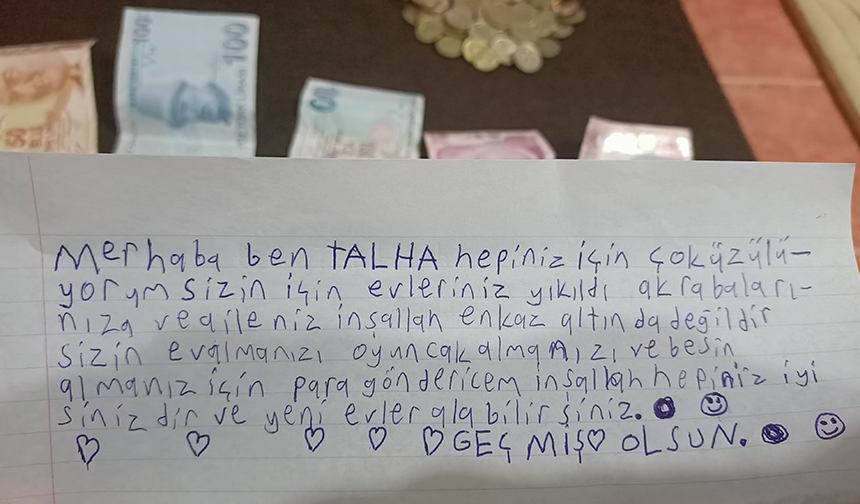 50
100
100
Merhaba ben TALHA hepiniz için çok üzülü-
yorum sizin için evleriniz yıkıldı akrabaları-
nıza ve aileniz inşallah enkaz altında değildir
sizin ev almanızı oyuncak almanızı ve besin
almanız için para göndericem inşallah hepiniz iyi
siniz dir ve yeni evler ala bilir siniz.
GEÇ MİŞ OLSUN.